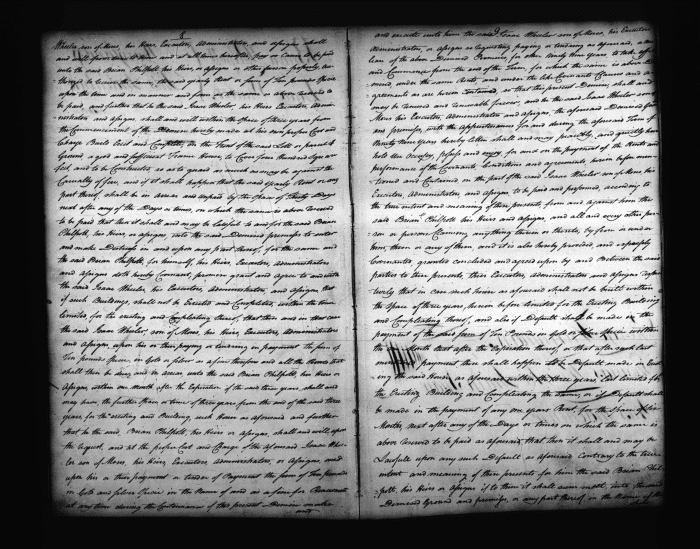 8
Wheeler son of Moses, his Heirs, Executors, Administrators, and assigns shall
and will from time to time and at all times hereafter, pay or Cause to be paid
unto the said Brian Philpott his Heirs, or assigns, or other person properly au-
thorized to receive the same, the rent of
upon the and in manner and form as the same is above reserved to
be paid and further that he the said Isaac Wheeler, his Heirs Executors, Admin-
istrators and assigns shall and will within the space of three years from
the Commencement of the Demise hereby made at his own proper Cost and
Charge Build Erect and Compleat, on the Front of the said Lott or parcel of
Ground a good and sufficient Frame House, to Cover four Hundred Square
feet, and to be Constructed, so as to guard as much as may be against the
Casualty of fire, and if it shall happen that the said yearly Rent or any
part thereof, shall be in arrear and unpaid by the space of Thirty Days
next after any of the Days or times, on which the same is above reserved
to be paid that then it shall and may be Lawful to and for the said Brian
Philpott, his Heirs or assigns, into the said Demised premises to enter
and make Distress in and upon any part thereof, for the same and
the said Brian Philpott for himself, his Heirs, Executors, Administrators
and assigns doth hereby Covenant, promise grant and agree to and with
the said Isaac Wheeler, his Executors, Administrators, and assigns, that
if such Buildings, shall not be Erected and Compleated, within the time
limited, for the erecting and compleating thereof, that then and in that case
the said Isaac Wheeler, son of Moses, his Heirs, Executors, Administrators
and assigns, upon his or their paying or tendering in payment the sum of
Ten pounds Specie, in Gold or Silver as a fine therefor and all the rents that
shall then be due, and in arrear unto the said Brian Philpott, his Heirs or
assigns, within one Month after the Expiration of the said three years, shall and
may have, the further Term or time of three years from the end of the said three
years for the erecting and Building such House as aforesaid and further
that he the said, Brian Philpott, his Heirs or assigns, shall and will upon
the request, and at the proper Cost and Charge of the aforesaid Isaac Whee-
ler son of Moses, his Heirs, Executors, Administrators, or assigns, and
upon his or their payment or tender of Payment the sum of Ten pounds
in Gold and Silver Specie in the Name of and as a fine for Renewment
at any time during the Continuance of this present Demise make
and
9
and execute unto him the said Isaac Wheeler son of Moses, his Executors
Administrators, or assigns so requesting paying or tendering as aforesaid, a new
lease of the above Demised Premises for other Ninety nine years to take effect
and Commence from the end of the Term, for which the same is above De-
mised under the same Rents, and under the like Covenants Clauses and a-
greements as are herein Contained, so that this present Demise, shall and
may be renewed and renewable forever, and he the said Isaac Wheeler son of
Moses his Executors, Administrators and assigns, the aforesaid Demised Ground
and premises, with the appurtenances for and during the aforesaid Term of
Ninety nine years hereby letten shall and may peaceably, and quietly have
hold use Occupy, possess and enjoy, for and on the payment of the Rents and
performance of the Covenants, Conditions and agreements, herein before men-
tioned and Contained on the part of the said Isaac Wheeler son of Moses his
Executors, Administrators and assigns, to be paid and performed, according to
the true intent and meaning of these presents, from and against him the
said Brian Philpott his Heirs and assigns, and all and every other per-
son or persons Claiming anything therein or thereto, by from or under
him, them or any of them, and it is also hereby provided, and expressly
Covenanted, granted, concluded and agreed upon by and Between the said
parties to these presents, their Executors, Administrators and assigns respec-
tively, that in case such house as aforesaid shall not be built within
the Space of three years, herein before limited for the Erecting Building
and Compleating thereof, and also if Default shall be made in the
payment of the said sum of Ten Pounds in Gold or Silver Specie within
the Month after the Expiration thereof, or that after such last
payment, there shall happen to be Default made in Buil-
ding the said House as aforesaid within the three years, last limited for
the Erecting Building and Compleating the same, or if Default shall
be made in the payment of any one years Rent, for the space of Six
Months next after any of the Days or times on which the same is
above reserved to be paid as aforesaid, that then it shall and may be
Lawfull upon any such Default as aforesaid Contrary to the true
intent and meaning of these presents for him the said Brian Phil-
pott, his Heirs or assigns if to them it shall seem meet, into the said
Demised Ground and premises, or any part thereof in the Name of the